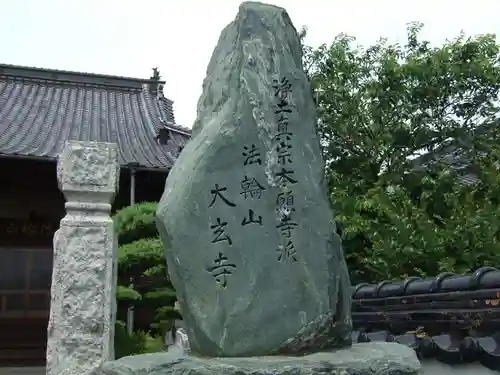 浄土真宗本願寺派
法輪山
大玄寺